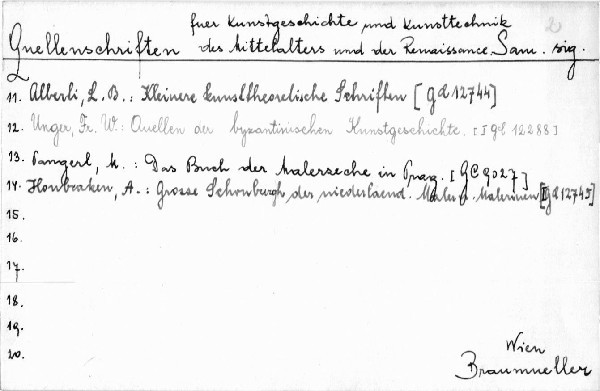 fuer Kunstgeschichte und Kunsttechnik
2
Quellenschriften des Mittelalters und der Renaissance. Sam. sig.
11. Alberti, L. B.: Kleinere kunsttheoretische Schriften [gd 12744]
12. Unger, Fr. W: Quellen der byzantinischen Kunstgeschichte. [I gd 12288]
13. Pangerl, M.: Das Buch der Malerzeche in Prag. [GC 9027]
14. Houbraken, A.: Grosse Schouburgh der niederlaend. Maler u. Malerinen [I gd 12745]
15.
16.
17.
18.
19.
20.
Wien
Braumueller